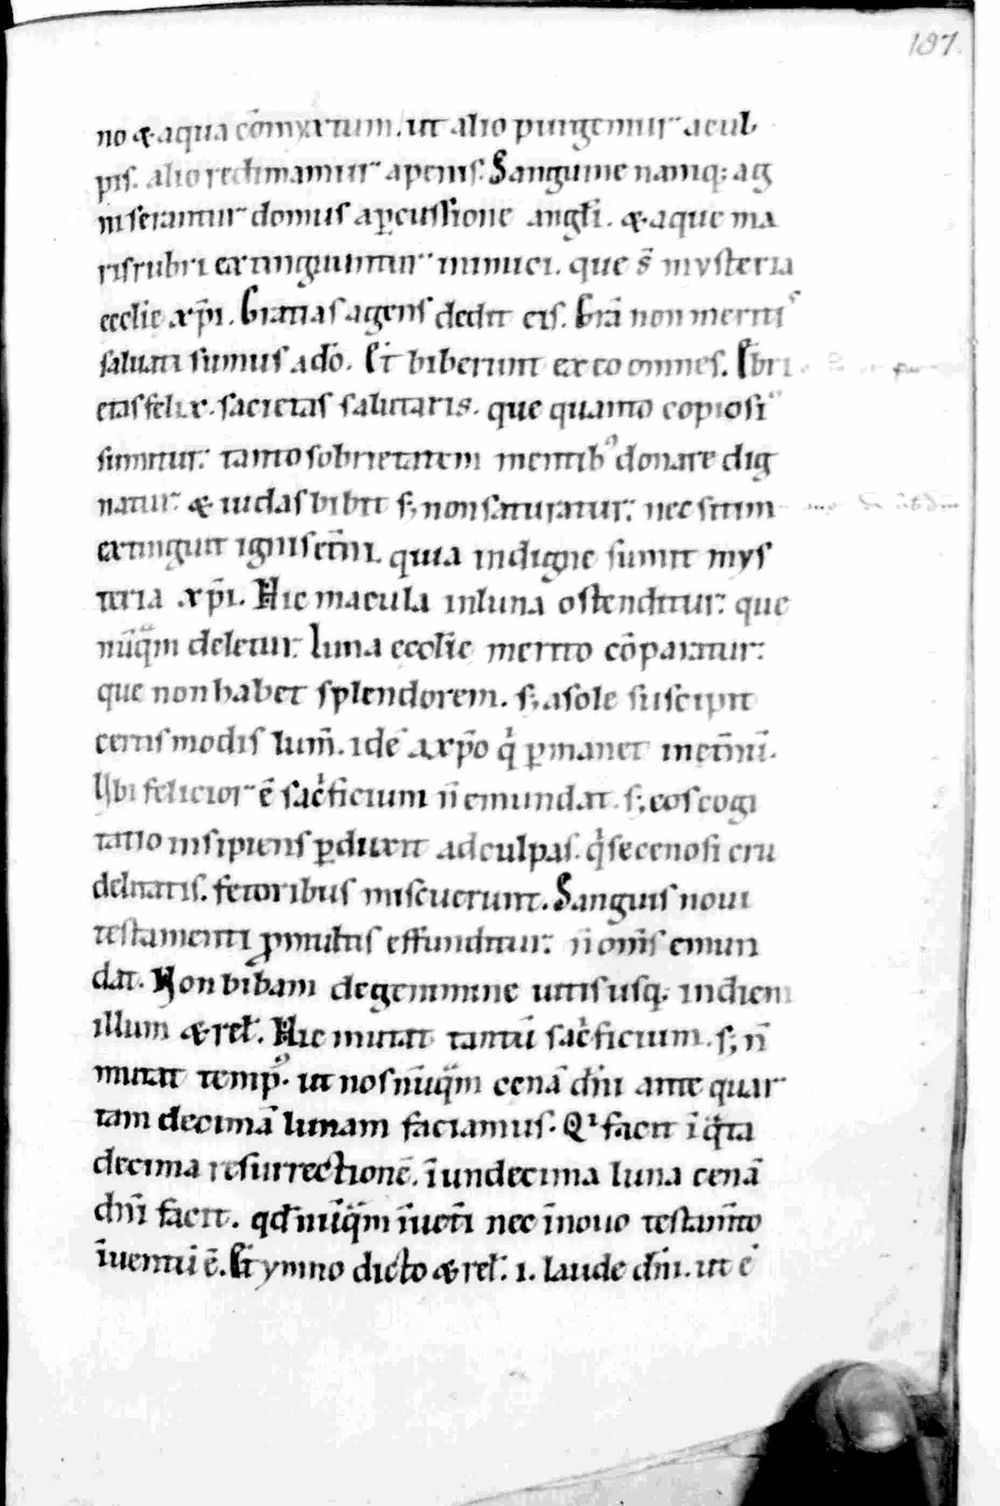 197.
no & aqua cōmyxtum. ut alio purgemur a cul
pis. alio redimamur a penis. Sanguine namq; ag
ni seruantur domus a ꝑcussione angłi. & aque ma
ris rubri extinguuntur inimici. que s̄ mysteria
ecclie xp̄i. Gratias agens dedit eis. Gr̄a non meritis
saluati sumus a dō. Et biberunt ex eo omnes. Ebri
etas felix. sacietas salutaris. que quanto copiosi᷒
sumitur. tanto sobrietatem mentib᷒ donare dig
natur. & iudas bibit s; non saturatur. nec sitim
extinguit ignis et̄ni. quia indigne sumit mys
teria xp̄i. Hic macula in luna ostenditur. que
nūqᵃ̄m deletur. luna ecclie merito cōparatur.
que non habet splendorem. s; a sole suscipit
certis modis lum̄. idē a xp̄o qⁱ ꝑmanet in et̄nū.
Ubi felicior ē sacⁱficium n̄ emundat. s; eos cogi
tatio insipiens ꝑduxit ad culpas. qⁱ se cenosi cru
delitatis. fetoribus miscuerunt. Sanguis noui
testamenti ꝓ multis effunditur. n̄ om̄s emun
dat. Non bibam de gemmine uitis usq; in diem
illum & reł. Hic mutat tantū sacⁱficium. s; n̄
mutat temp᷒. ut nos nūqᵃ̄m cenā dn̄i ante quar
tam decimā lunam faciamus. Qⁱ facit ī qᵃ̄ta
decima resurrectionē. ī undecima luna cenā
dn̄i facit. qđ nūqᵃ̄m ī uet̄i nec ī nouo testam̄to
īuentū ē. Et ymno dicto & reł. i. laude dn̄i. ut ē